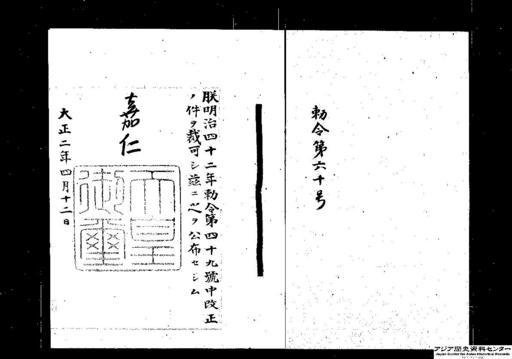 勅令第六十号
朕明治四十二年勅令第四十九號中改正
ノ件ヲ裁可シ茲ニ之ヲ公布セシム
嘉仁
天皇
御璽
大正二年四月十二日
アジア歴史資料センター
Japan Center for Asian Historical Records